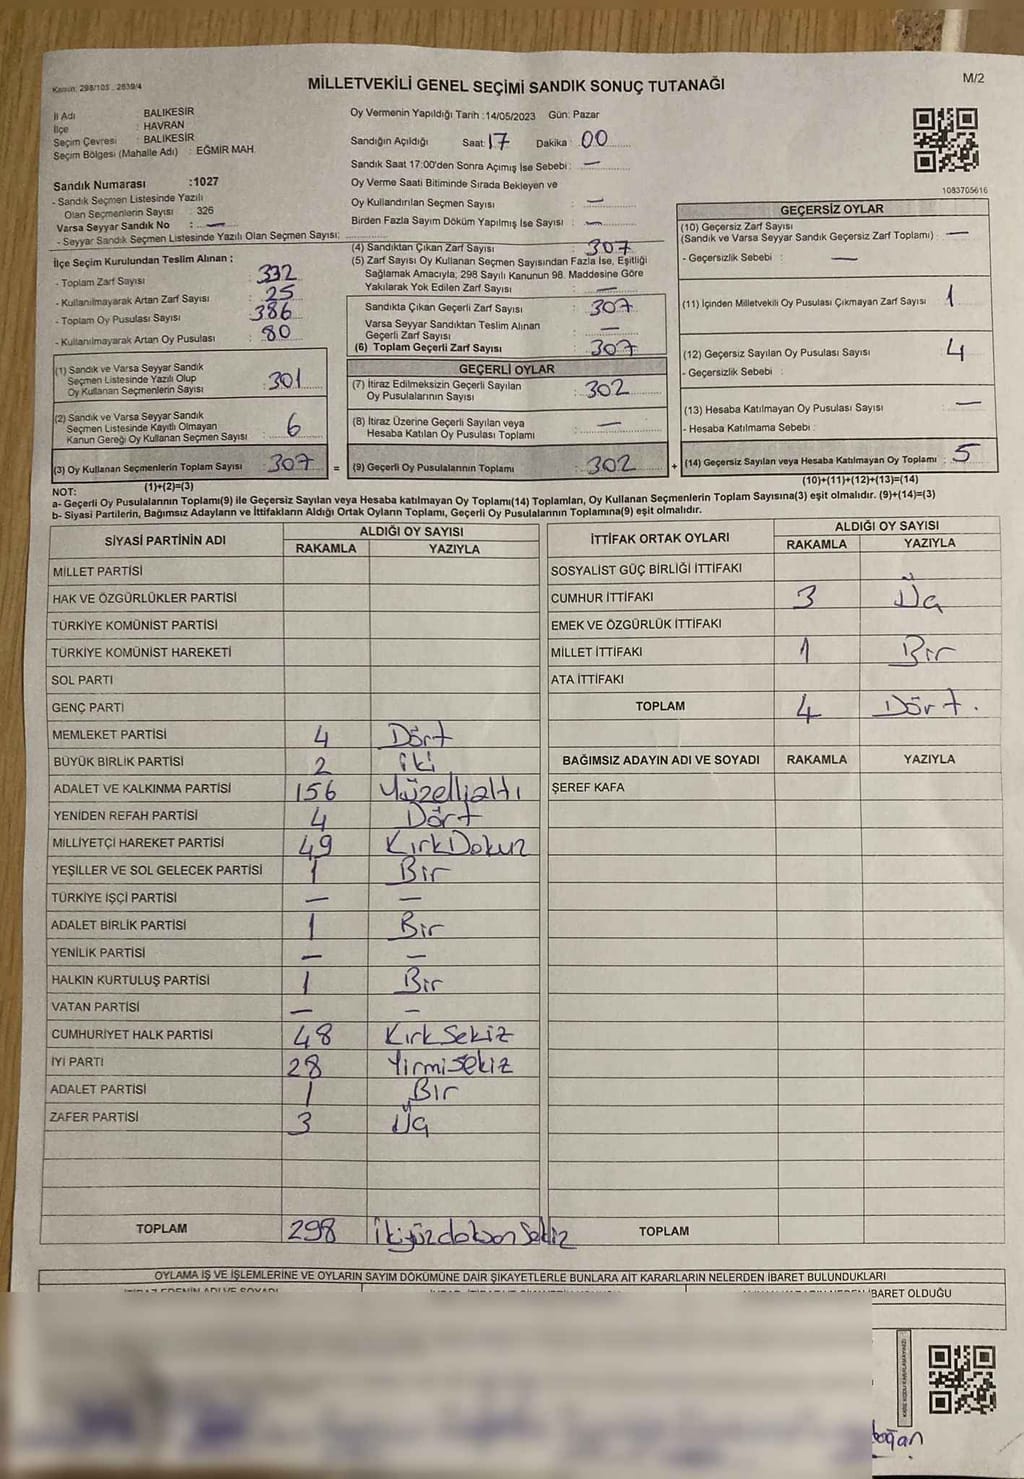 Kanun: 298/105 , 2839/4
MİLLETVEKİLİ GENEL SEÇİMİ SANDIK SONUÇ TUTANAĞI
M/2
İl Adı : BALIKESİR
İlçe : HAVRAN
Seçim Çevresi : BALIKESİR
Seçim Bölgesi (Mahalle Adı) : EĞMİR MAH.
Oy Vermenin Yapıldığı Tarih :14/05/2023 Gün: Pazar
Sandığın Açıldığı Saat: 17 Dakika : 00
Sandık Saat 17:00'den Sonra Açımış İse Sebebi : —
Oy Verme Saati Bitiminde Sırada Bekleyen ve
Oy Kullandırılan Seçmen Sayısı : —
Birden Fazla Sayım Döküm Yapılmış İse Sayısı : —
1083705616
Sandık Numarası :1027
- Sandık Seçmen Listesinde Yazılı
Olan Seçmenlerin Sayısı : 326
Varsa Seyyar Sandık No : —
- Seyyar Sandık Seçmen Listesinde Yazılı Olan Seçmen Sayısı:
İlçe Seçim Kurulundan Teslim Alınan :
- Toplam Zarf Sayısı : 332
- Kullanılmayarak Artan Zarf Sayısı : 25
- Toplam Oy Pusulası Sayısı : 386
- Kullanılmayarak Artan Oy Pusulası : 80
(1) Sandık ve Varsa Seyyar Sandık
Seçmen Listesinde Yazılı Olup
Oy Kullanan Seçmenlerin Sayısı : 301
(2) Sandık ve Varsa Seyyar Sandık
Seçmen Listesinde Kayıtlı Olmayan
Kanun Gereği Oy Kullanan Seçmen Sayısı : 6
(3) Oy Kullanan Seçmenlerin Toplam Sayısı : 307
(1)+(2)=(3)
(4) Sandıktan Çıkan Zarf Sayısı : 307
(5) Zarf Sayısı Oy Kullanan Seçmen Sayısından Fazla İse, Eşitliği
Sağlamak Amacıyla; 298 Sayılı Kanunun 98. Maddesine Göre
Yakılarak Yok Edilen Zarf Sayısı : —
Sandıkta Çıkan Geçerli Zarf Sayısı : 307
Varsa Seyyar Sandıktan Teslim Alınan
Geçerli Zarf Sayısı : —
(6) Toplam Geçerli Zarf Sayısı : 307
GEÇERLİ OYLAR
(7) İtiraz Edilmeksizin Geçerli Sayılan
Oy Pusulalarının Sayısı : 302
(8) İtiraz Üzerine Geçerli Sayılan veya
Hesaba Katılan Oy Pusulası Toplamı : —
= (9) Geçerli Oy Pusulalarının Toplamı : 302
GEÇERSİZ OYLAR
(10) Geçersiz Zarf Sayısı
(Sandık ve Varsa Seyyar Sandık Geçersiz Zarf Toplamı) : —
- Geçersizlik Sebebi : —
(11) İçinden Milletvekili Oy Pusulası Çıkmayan Zarf Sayısı : 1
(12) Geçersiz Sayılan Oy Pusulası Sayısı : 4
- Geçersizlik Sebebi :
(13) Hesaba Katılmayan Oy Pusulası Sayısı : —
- Hesaba Katılmama Sebebi :
+ (14) Geçersiz Sayılan veya Hesaba Katılmayan Oy Toplamı : 5
(10)+(11)+(12)+(13)=(14)
NOT:
a- Geçerli Oy Pusulalarının Toplamı(9) ile Geçersiz Sayılan veya Hesaba katılmayan Oy Toplamı(14) Toplamları, Oy Kullanan Seçmenlerin Toplam Sayısına(3) eşit olmalıdır. (9)+(14)=(3)
b- Siyasi Partilerin, Bağımsız Adayların ve İttifakların Aldığı Ortak Oyların Toplamı, Geçerli Oy Pusulalarının Toplamına(9) eşit olmalıdır.
SİYASİ PARTİNİN ADI ALDIĞI OY SAYISI
RAKAMLA YAZIYLA
MİLLET PARTİSİ
HAK VE ÖZGÜRLÜKLER PARTİSİ
TÜRKİYE KOMÜNİST PARTİSİ
TÜRKİYE KOMÜNİST HAREKETİ
SOL PARTİ
GENÇ PARTİ
MEMLEKET PARTİSİ 4 Dört
BÜYÜK BİRLİK PARTİSİ 2 iki
ADALET VE KALKINMA PARTİSİ 156 Yüzellialtı
YENİDEN REFAH PARTİSİ 4 Dört
MİLLİYETÇİ HAREKET PARTİSİ 49 KırkDokuz
YEŞİLLER VE SOL GELECEK PARTİSİ 1 Bir
TÜRKİYE İŞÇİ PARTİSİ — —
ADALET BİRLİK PARTİSİ 1 Bir
YENİLİK PARTİSİ — —
HALKIN KURTULUŞ PARTİSİ 1 Bir
VATAN PARTİSİ — —
CUMHURİYET HALK PARTİSİ 48 Kırk Sekiz
İYİ PARTİ 28 Yirmisekiz
ADALET PARTİSİ 1 Bir
ZAFER PARTİSİ 3 Üç
TOPLAM 298 İkiyüzdoksan Sekiz
İTTİFAK ORTAK OYLARI ALDIĞI OY SAYISI
RAKAMLA YAZIYLA
SOSYALİST GÜÇ BİRLİĞİ İTTİFAKI
CUMHUR İTTİFAKI 3 Üç
EMEK VE ÖZGÜRLÜK İTTİFAKI
MİLLET İTTİFAKI 1 Bir
ATA İTTİFAKI
TOPLAM 4 Dört.
BAĞIMSIZ ADAYIN ADI VE SOYADI RAKAMLA YAZIYLA
ŞEREF KAFA
TOPLAM
OYLAMA İŞ VE İŞLEMLERİNE VE OYLARIN SAYIM DÖKÜMÜNE DAİR ŞİKAYETLERLE BUNLARA AİT KARARLARIN NELERDEN İBARET BULUNDUKLARI
İBARET OLDUĞU